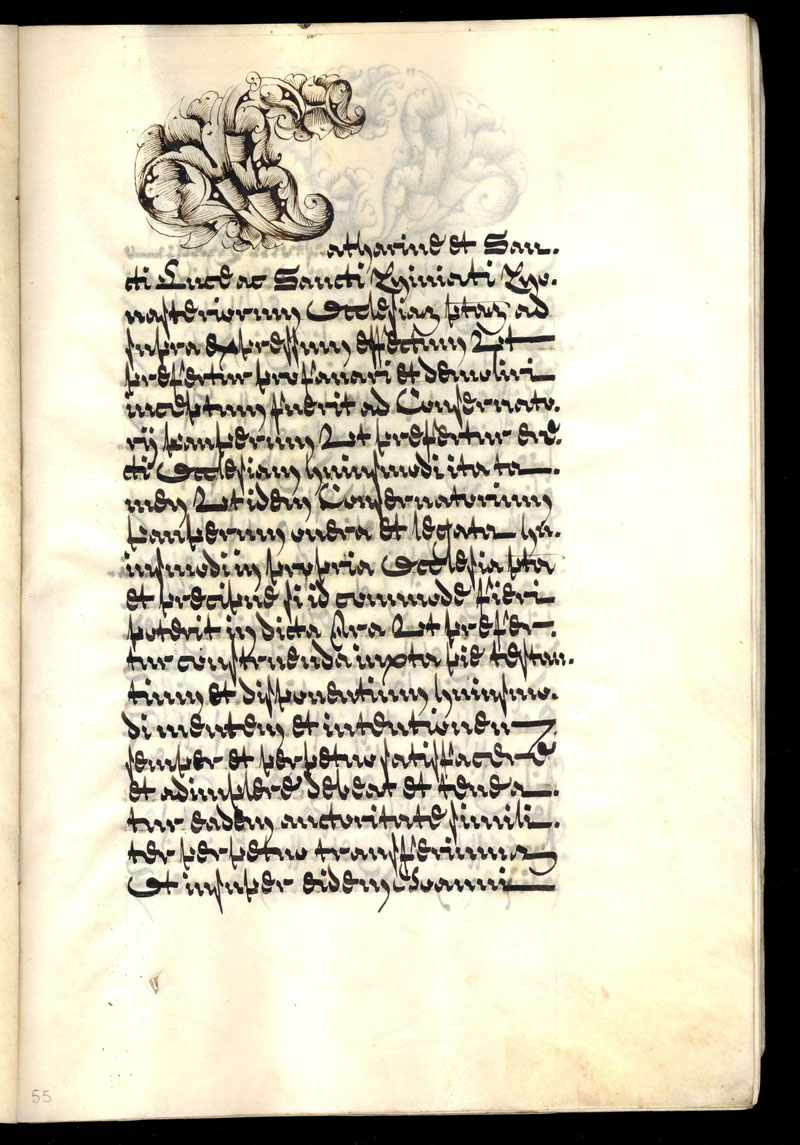 Catharine et San-
cti Luce ac Sancti Miniati Mo-
nasteriorum Ecclesiaz ptaz ad
supra expressum effectum Ut
prefertur profanari et demoliri
inceptum fuerit ad Conservato-
rij pauperum Ut prefertur ere-
cti Ecclesiam huiusmodi ita ta-
men Ut idem Conservatorium
pauperum onera et legata hu-
iusmodi in propria Ecclesia pta
et precipue si id commode fieri
poterit in dicta Ara Ut prefer-
tur construenda iuxta pie testan-
tium et disponentium huiusmo-
di mentem et intentionem
semper et perpetuo satisfacere
et adimplere debeat et tenea-
tur eadem auctoritate simili-
ter perpetuo transferimus
Et insuper eidem Joanni
55